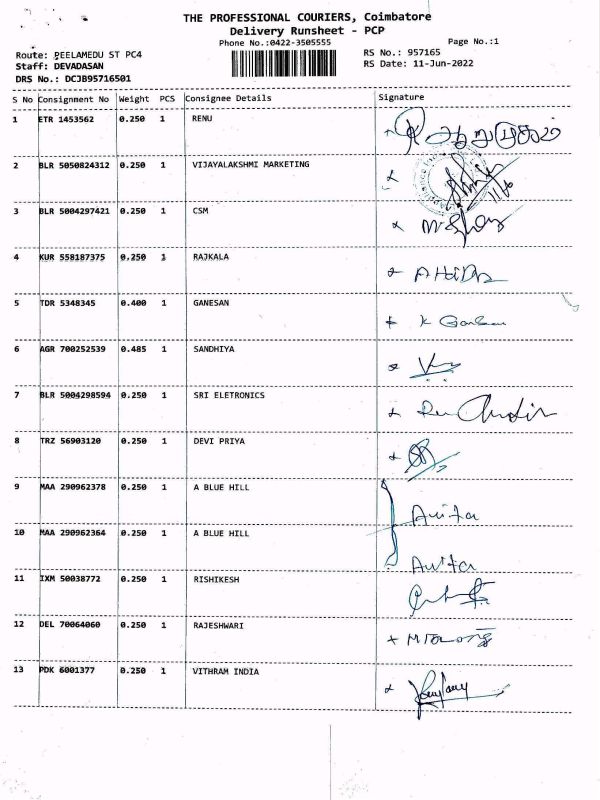 THE PROFESSIONAL COURIERS, Coimbatore
Delivery Runsheet - PCP
Phone No.:0422-3505555
Page No.:1
Route: PEELAMEDU ST PC4
RS No.: 957165
Staff: DEVADASAN
RS Date: 11-Jun-2022
DRS No.: DCJB95716501
S No Consignment No Weight PCS Consignee Details Signature
1 ETR 1453562 0.250 1 RENU
2 BLR 5050824312 0.250 1 VIJAYALAKSHMI MARKETING
3 BLR 5004297421 0.250 1 CSM
4 KUR 558187375 0.250 1 RAJKALA
5 TDR 5348345 0.400 1 GANESAN
6 AGR 700252539 0.485 1 SANDHIYA
7 BLR 5004298594 0.250 1 SRI ELETRONICS
8 TRZ 56903120 0.250 1 DEVI PRIYA
9 MAA 290962378 0.250 1 A BLUE HILL Anita
10 MAA 290962364 0.250 1 A BLUE HILL Anita
11 IXM 50038772 0.250 1 RISHIKESH
12 DEL 70064060 0.250 1 RAJESHWARI
13 PDK 6001377 0.250 1 VITHRAM INDIA